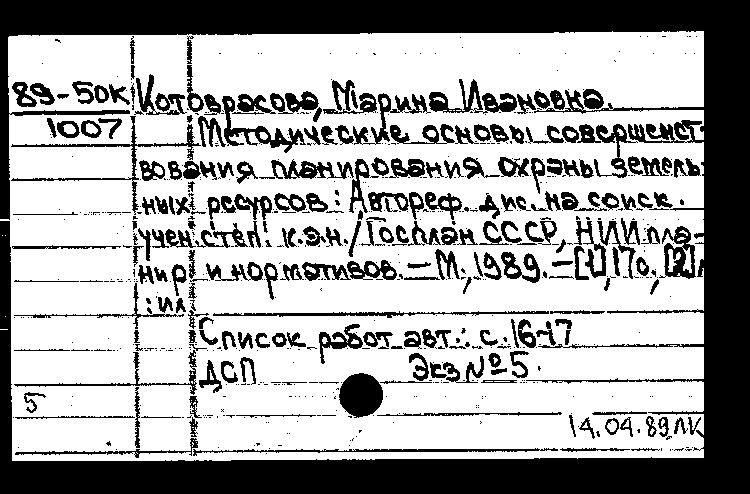 89-50к Котоврасова, Марина Ивановна.
1007 Методические основы совершенст-
вования планирования охраны земель-
ных ресурсов: Автореф. дис. на соиск.
учен. степ. к.э.н./Госплан СССР, НИИ пла-
нир и нормативов. — М., 1989. — [1], 17с, [2]
: ил
Список работ авт.: с. 16-17
ДСП Экз № 5.
5
14.04.89 ЛК